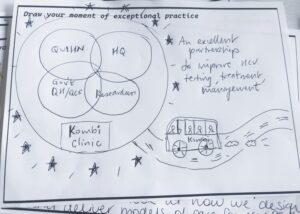 Draw your moment of exceptional practice
QuIHN
HQ
Govt
QH/QCS
Researchers
Kombi
clinic
- An excellent
partnerships
- to improve HCV
testing, treatment,
management
Kombi
now we design
deliver models of care